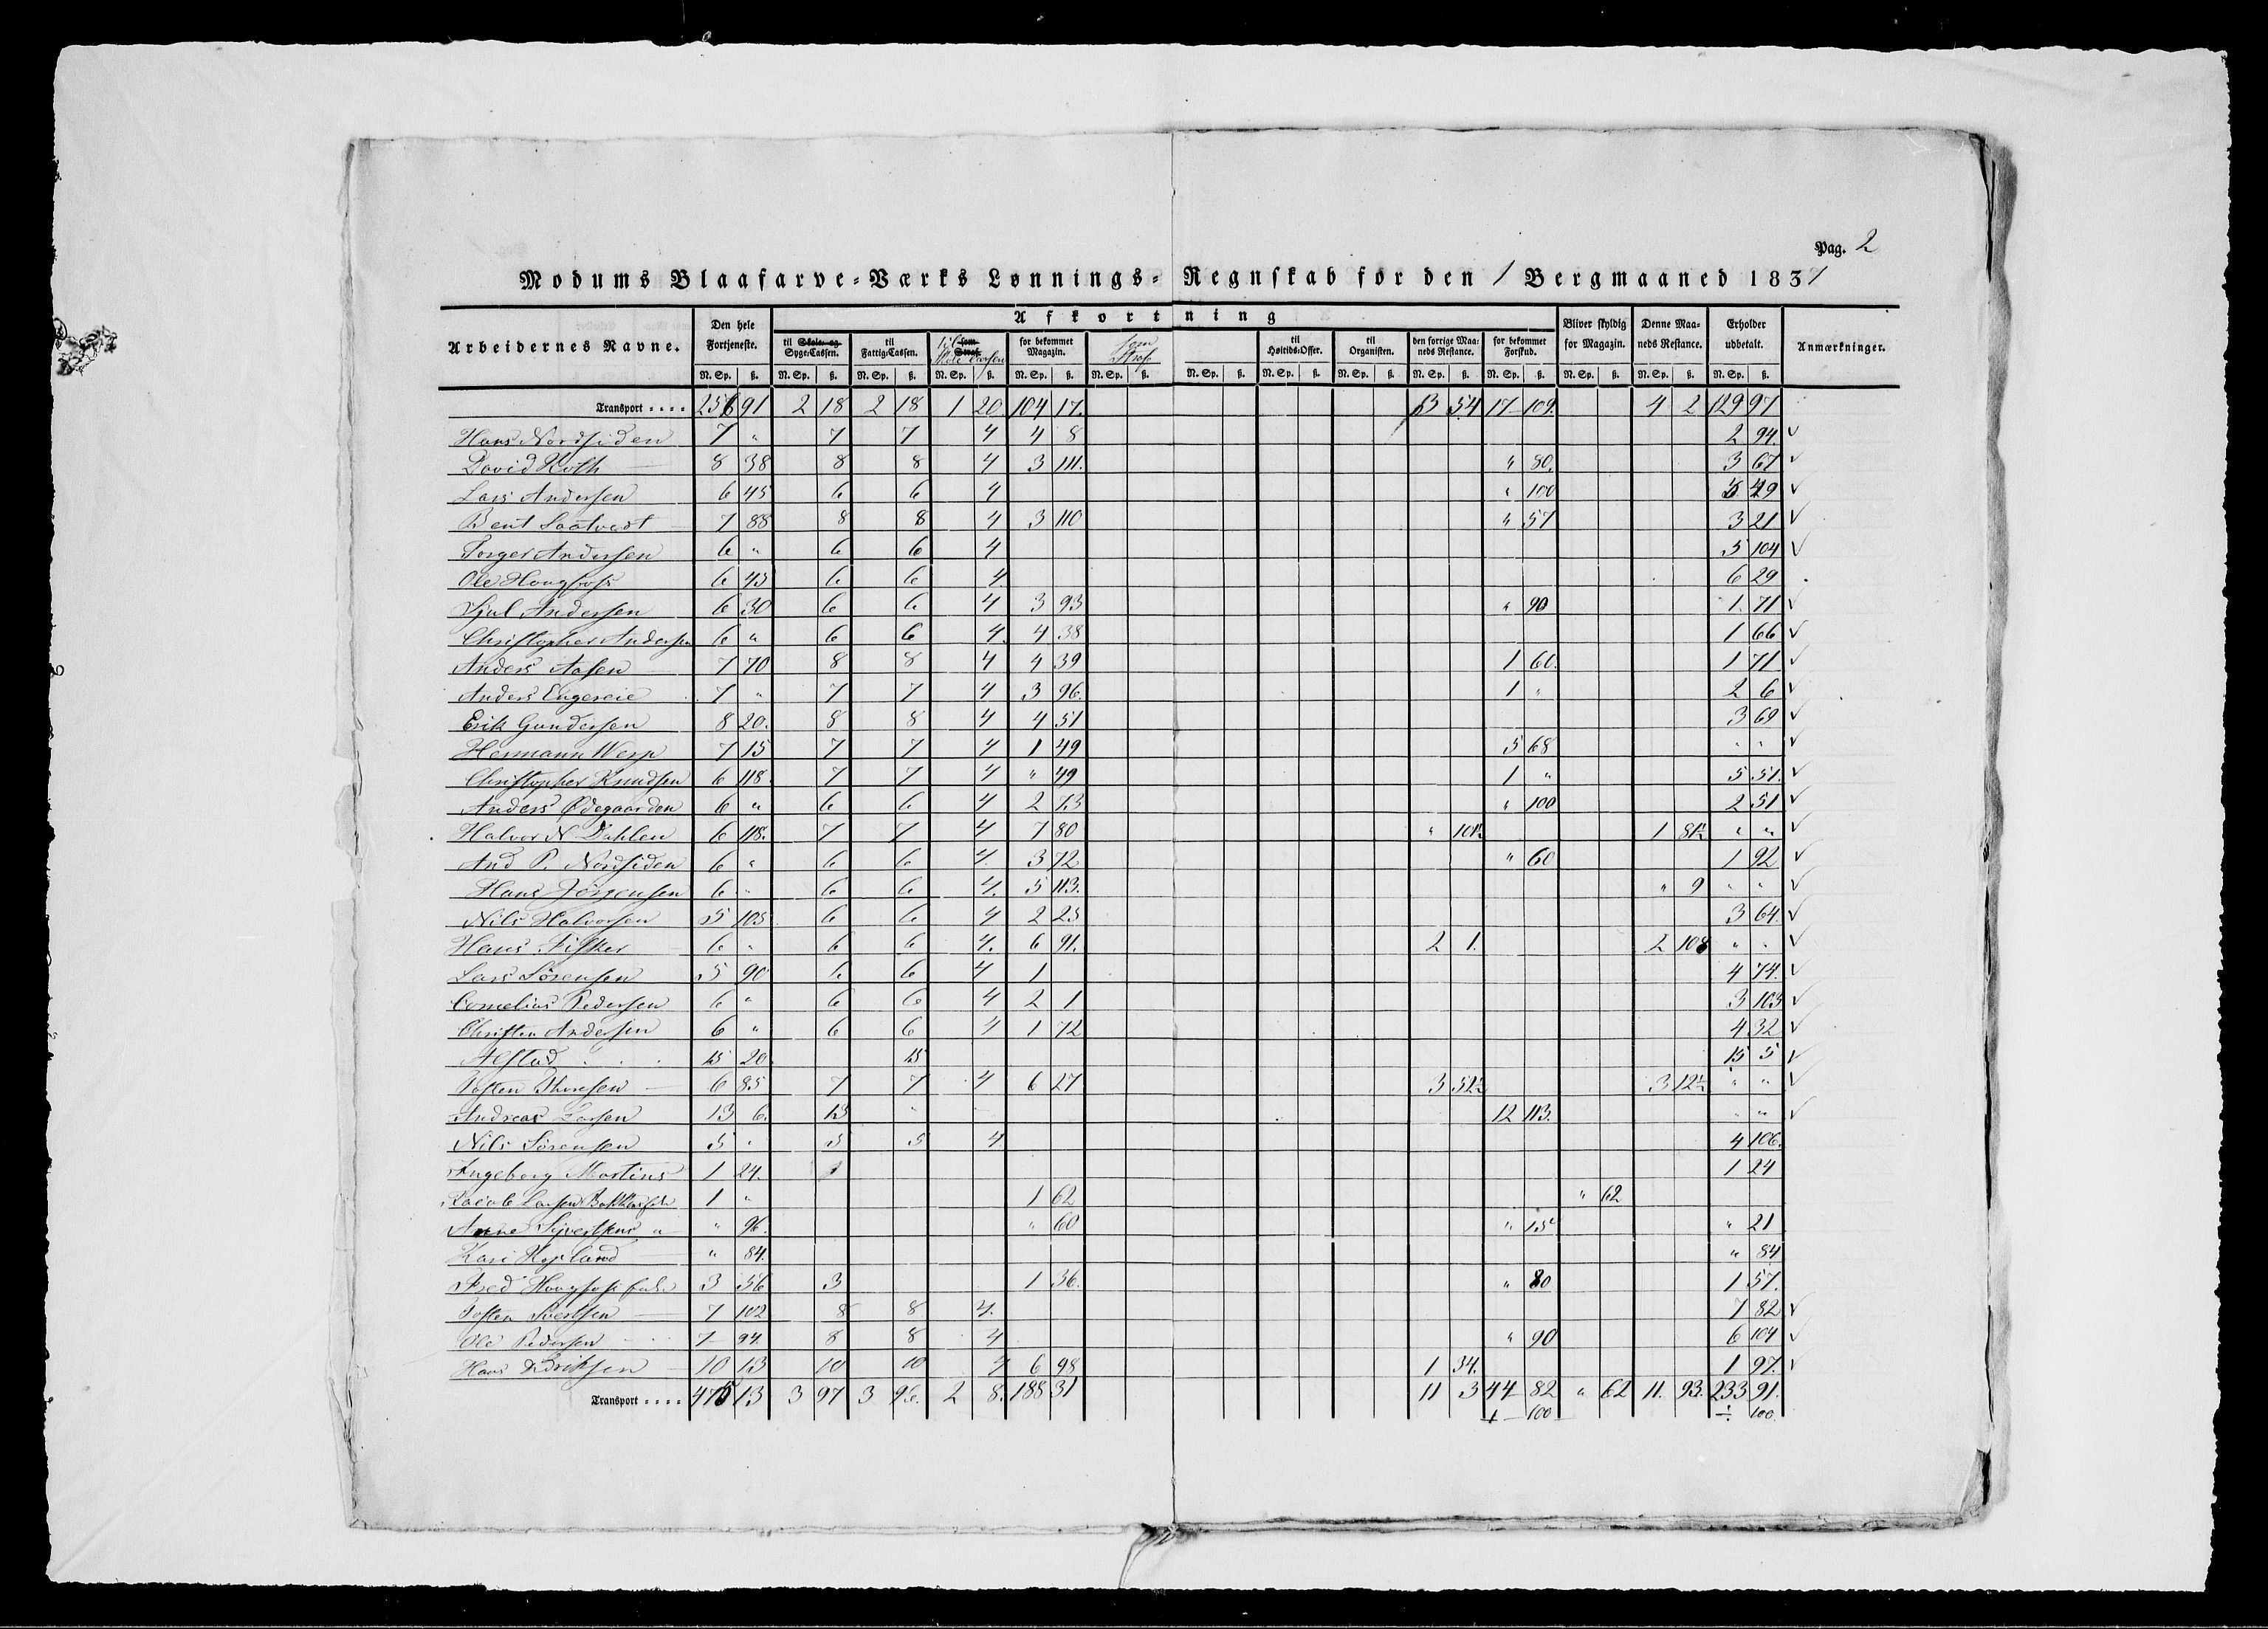 Pag. 2
Modums Blaafarve-Værks Lønnings-Regnskab for den 1 Bergmaaned 1837
Arbeidernes Navne. Den hele Fortjeneste. Afkortning Bliver skyldig for Magazin. Denne Maaneds Restance. Erholder udbetalt. Anmærkninger.
til Skole- og Syge-Cassen. til Fattig-Cassen. til som Straf. Skole Cassen for bekommet Magazin. som Straf til Høitids-Offer. til Organisten. den forrige Maaneds Restance. for bekommet Forskud.
N. Sp. ß. N. Sp. ß. N. Sp. ß. N. Sp. ß. N. Sp. ß. N. Sp. ß. N. Sp. ß. N. Sp. ß. N. Sp. ß. N. Sp. ß. N. Sp. ß. N. Sp. ß. N. Sp. ß. N. Sp. ß.
Transport .... 256 91 2 18 2 18 1 20 104 17. 3 54 17 109. 4 2 129 97
Hans Nordsiden 7 " 7 7 4 4 8 2 94. ✓
David Hoth 8 38 8 8 4 3 111. " 80. 3 67 ✓
Lars Andersen 6 45 6 6 4 " 100 49 ✓
Bent Saatvedt 7 88 8 8 4 3 110 " 57 3 21 ✓
Torger Andersen 6 " 6 6 4 5 104 ✓
Ole Hougfoss 6 45 6 6 4 6 29
Sjul Andersen 6 30 6 6 4 3 93 " 90 1 71 ✓
Christopher Andersen 6 " 6 6 4 4 38 1 66 ✓
Anders Aasen 7 70 8 8 4 4 39 1 60. 1 71 ✓
Anders Engereie 7 " 7 7 4 3 96. 1 " 2 6 ✓
Erik Gundersen 8 20. 8 8 4 4 51 3 69 ✓
Hermann Werp 7 15 7 7 4 1 49 5 68 " " ✓
Christopher Knudsen 6 118. 7 7 4 " 49 1 " 5 51. ✓
Anders Ødegaarden 6 " 6 6 4 2 73 " 100 2 51 ✓
Halvor N Dahlen 6 118. 7 7 4 7 80 " 101½ 1 81½ " " ✓
And P. Nordsiden 6 " 6 6 4 3 72 " 60 1 92 ✓
Hans Jörgensen 6 " 6 6 4. 5 113. " 9 " " ✓
Nils Halvorsen 5 105 6 6 4 2 25 3 64. ✓
Hans Fisker 6 " 6 6 4. 6 91. 2 1. 2 108 " " ✓
Lars Sörensen 5 90 6 6 4 1 4 74. ✓
Cornelius Pedersen 6 " 6 6 4 2 1 3 103 ✓
Christen Andersen 6 " 6 6 4 1 72 4 32 ✓
Alstad 15 20. 15 15 5 ✓
Tosten Thoresen 6 85 7 7 4 6 27 3 51½ 3 12½ " " ✓
Andreas Larsen 13 6. 13 12 113. " " ✓
Nils Sörensen 5 " 5 5 4 4 106.
Ingeborg Martins 1 24. 1 24
Jacob Larsen 1 " 1 62 " 62
Anne Syvertsens " " 96. " 60 " 15 " 21
Kari Hopland " 84. " 84
Fred Hougfoss 3 56 3 1 36. " 80 1 57.
Tosten Sivertsen 7 102 8 8 4. 7 82 ✓
Ole Pedersen 7 94. 8 8 4 " 90 6 104 ✓
Hans Eriksen 10 13 10 10 4 6 98 1 34. 1 97. ✓
Transport .... 475 13 3 97 3 96. 2 8. 188 31 11 3 44 82 " 62 11. 93. 233 91.
1 100 ÷ 100.